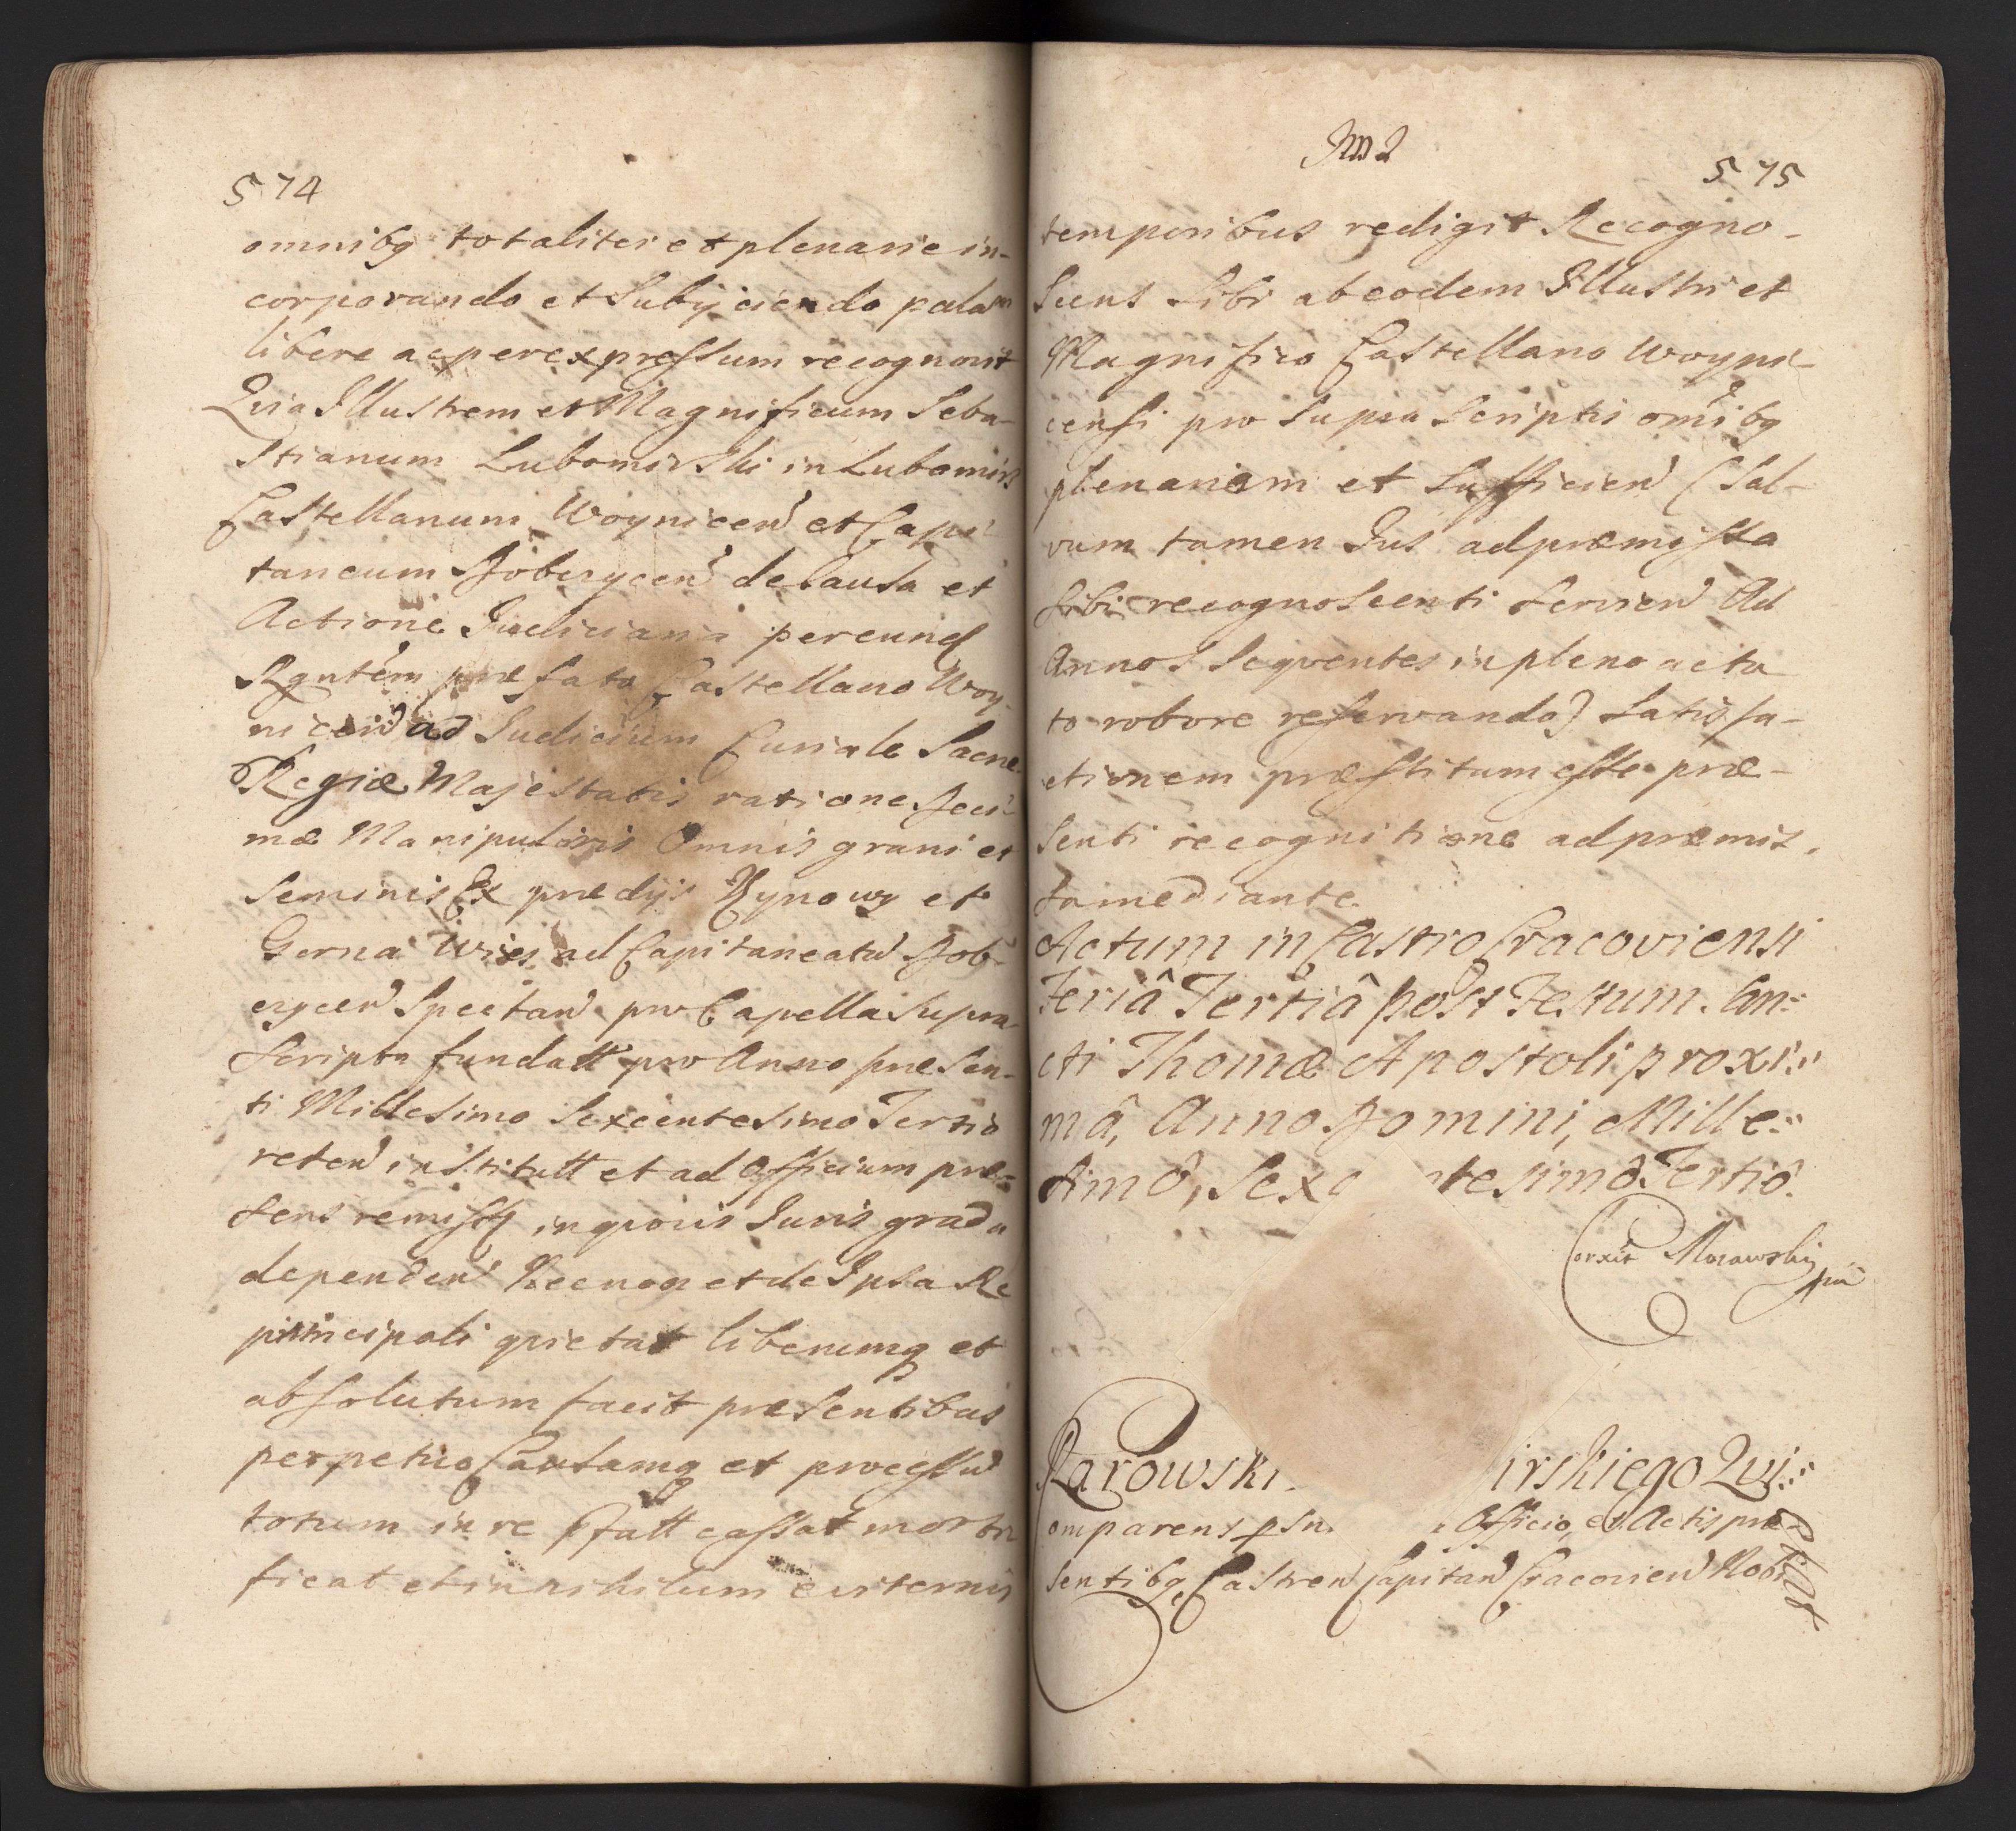 574
omnibq totaliter et plenarie in-
corporando et Subijciendo palam
libere ac per expressum recognovit
Quia Illustrem et Magnificum Seba-
stianum Lubomirski in Lubomirz
Castellanum Woynicen et Capi-
taneum Dobczycen de Causa et
Actione Judiciaria per eund
Rgntem præfato Castellano Woy-
nicen ad Judicium Curiale Sacræ
Regiæ Majestatis ratione Deci-
mæ Manipularis Omnis grani et
Seminis Ex prædijs et
Gorna Wies ad Capitaneatu Dob-
czycen Spectan pro Capella Supra
Scripta fundatt pro Anno præsen-
ti Millesimo Sexcentesimo Tertio
reten institutt et ad Officium præ-
sens remissq in quovis Juris gradu
dependen Necnon et de Ipsa Re
principali quietat liberumq et
absolutum facit præsentibus
perpetuo Causamq et processu
totum in re cassat morti-
ficat et in nihilum æviternis
575
temporibus redigit Recogno-
scens Sibi ab eodem Illustri et
Magnifico Castellano Woyni-
censi pro Supra Scriptis omibq
plenariam et Sufficien (Sal-
vum tamen Jus ad præmissa
Sibi recognoscenti Servien Ad
Annos Seqventes in pleno acta
to robore reservando) Satisfa-
ctionem præstitum esse præ-
senti recognitione ad præmis.
sa mediante.
Actum in Castro Cracoviensi
Feriâ Tertiâ post Festum. San:
cti Thomæ Apostoli proxi:
mâ, Anno Domini, Mille:
simô, Sexc tesimô Tertiô.
Corxit Morawskij
Karowski irskiego Qui:
omparens psn Officio, et Actis præ
sentibq Castren Capitan Cracovien Nobi